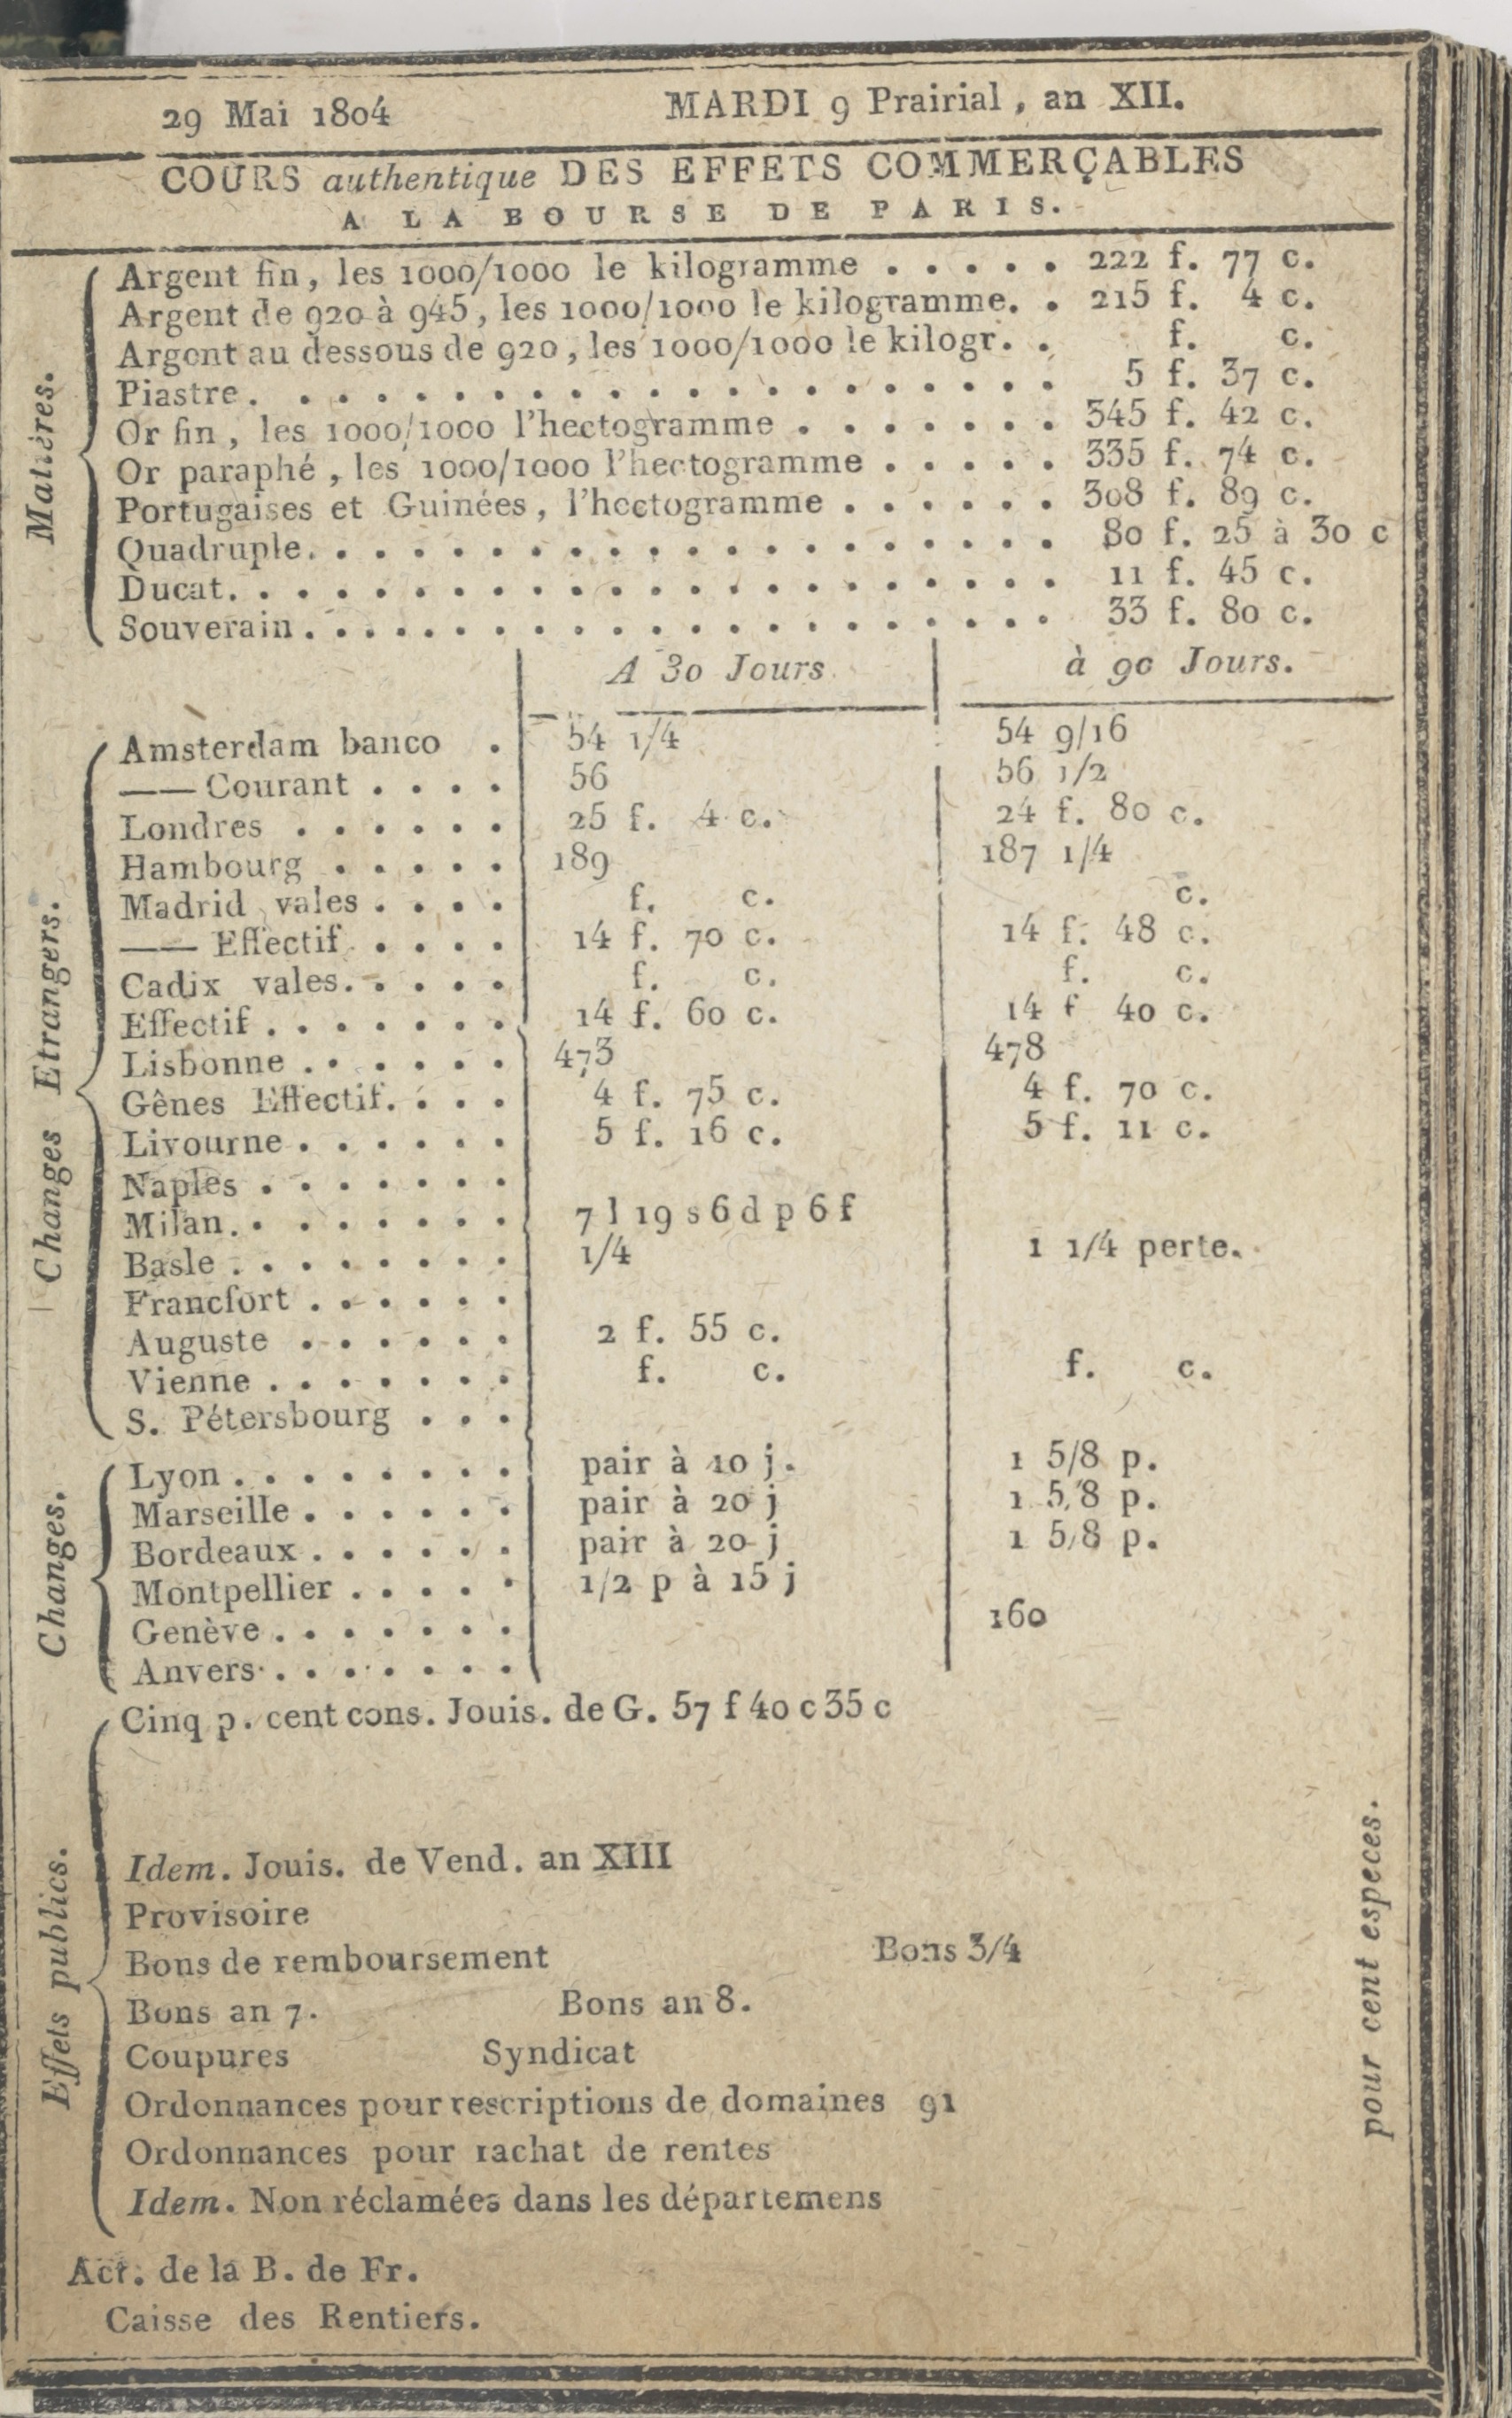 29 Mai 1804 MARDI 9 Prairial, an XII.
COURS authentique DES EFFETS COMMERÇABLES
A LA BOURSE DE PARIS.
Matières.
Argent fin, les 1000/1000 le kilogramme . . . . . 222 f. 77 c.
Argent de 920 à 945, les 1000/1000 le kilogramme. . 215 f. 4 c.
Argent au dessous de 920, les 1000/1000 le kilogr. . f. c.
Piastre. . . . . . . . . . . . . . . . . . . . . 5 f. 37 c.
Or fin, les 1000/1000 l'hectogramme . . . . . . . 345 f. 42 c.
Or paraphé, les 1000/1000 l'hectogramme . . . . . 335 f. 74 c.
Portugaises et Guinées, l'hectogramme . . . . . . 308 f. 89 c.
Quadruple. . . . . . . . . . . . . . . . . . . . 80 f. 25 à 30 c
Ducat. . . . . . . . . . . . . . . . . . . . . . 11 f. 45 c.
Souverain. . . . . . . . . . . . . . . . . . . . 33 f. 80 c.
A 30 Jours. à 90 Jours.
Changes Etrangers.
Amsterdam banco . 54 1/4 54 9/16
—— Courant . . . . 56 56 1/2
Londres . . . . . . 25 f. 4 c. 24 f. 80 c.
Hambourg . . . . . 189 187 1/4
Madrid vales . . . . f. c. c.
—— Effectif . . . . 14 f. 70 c. 14 f. 48 c.
Cadix vales. . . . . f. c. f. c.
Effectif . . . . . . . 14 f. 60 c. 14 f 40 c.
Lisbonne . . . . . . 473 478
Gênes Effectif. . . . 4 f. 75 c. 4 f. 70 c.
Livourne . . . . . . 5 f. 16 c. 5 f. 11 c.
Naples . . . . . . .
Milan. . . . . . . . 7 l 19 s 6 d p 6 f
Basle . . . . . . . . 1/4 1 1/4 perte.
Francfort . . . . . .
Auguste . . . . . . 2 f. 55 c.
Vienne . . . . . . . f. c. f. c.
S. Pétersbourg . . .
Changes.
Lyon . . . . . . . . pair à 10 j. 1 5/8 p.
Marseille . . . . . . pair à 20 j 1 5/8 p.
Bordeaux . . . . . . pair à 20 j 1 5/8 p.
Montpellier . . . . . 1/2 p à 15 j
Genève . . . . . . . 160
Anvers . . . . . . .
Effets publics.
Cinq p. cent cons. Jouis. de G. 57 f 40 c 35 c
Idem. Jouis. de Vend. an XIII
Provisoire
Bons de remboursement Bons 3/4
Bons an 7. Bons an 8.
Coupures Syndicat
Ordonnances pour rescriptions de domaines 91
Ordonnances pour rachat de rentes
Idem. Non réclamées dans les départemens
pour cent especes.
Act. de la B. de Fr.
Caisse des Rentiers.